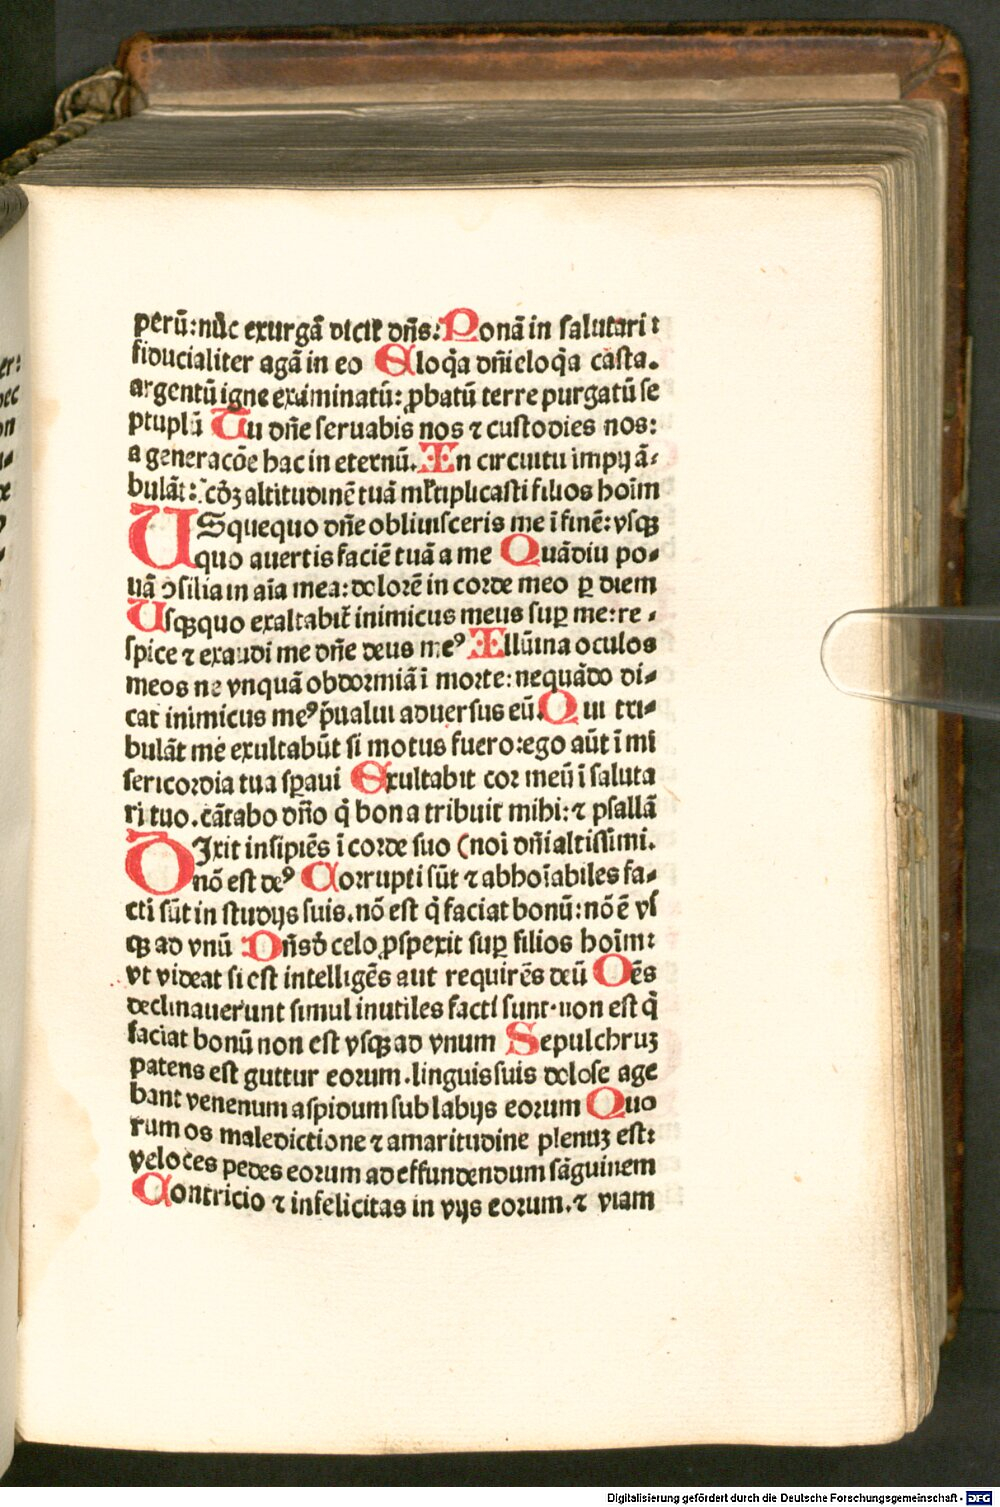 perū:nūc exurgā dicit dn̄s: Ponā in salutari :
fiduicialiter agā in eo Eloq̄a dn̄i eloq̄a casta.
argentū igne exáminatū: ꝓbatū terre purgatū se
ptuplū Tu dn̄e seruabis nos ⁊ custodies nos:
a generacōe hac in eternū. In circuitu impij ā⸗
bulāt: ẜcd̄ꝫ altitudinē tuā mĺtiplicasti filios hoīm
USquequo dn̄e obliuisceris me ī finē: vsqꝫ
quo auertis faciē tuā a me Quādiu po⸗
nā ↄsilia in aīa mea: dolorē in corde meo ꝑ diem
Usqꝫquo exaltabit̄ inimicus meus suꝑ me: re⸗
spice ⁊ exaudi me dn̄e deus meꝰ Illūina oculos
meos ne vnquā obdormiā ī morte: nequādo di⸗
cat inimicus meꝰ p̄ualui aduersus eū. Qui tri⸗
bulāt me exultabūt si motus fuero: ego aūt ī mi
sericordia tua sꝑaui Exultabit cor meū ī saluta
ri tuo. cātabo dn̄o q̄ bona tribuit mihi: ⁊ psallā
DIxit insipiēs ī corde suo (noī dn̄i altissimi.
nō est deꝰ Corrupti sūt ⁊ abhoīabiles fa⸗
cti sūt in studijs suis. nō est q̄ faciat bonū: nō ē vs
qꝫ ad vnū Dn̄s d̄ celo ꝓspexit suꝑ filios hoīm:
vt videat si est intelligēs aut requirēs deū Oēs
declinauerunt simul inutiles facti sunt· non est q̄
faciat bonū non est vsqꝫ ad vnum Sepulchruꝫ
patens est guttur eorum. linguis suis dolose age
bant venenum aspidum sub labijs eorum Quo
rum os maledictione ⁊ amaritudine plenuꝫ est:
veloces pedes eorum ad effundendum sāguinem
Contricio ⁊ infelicitas in vijs eorum. ⁊ viam
Digitalisierung gefördert durch die Deutsche Forschungsgemeinschaft - DFG